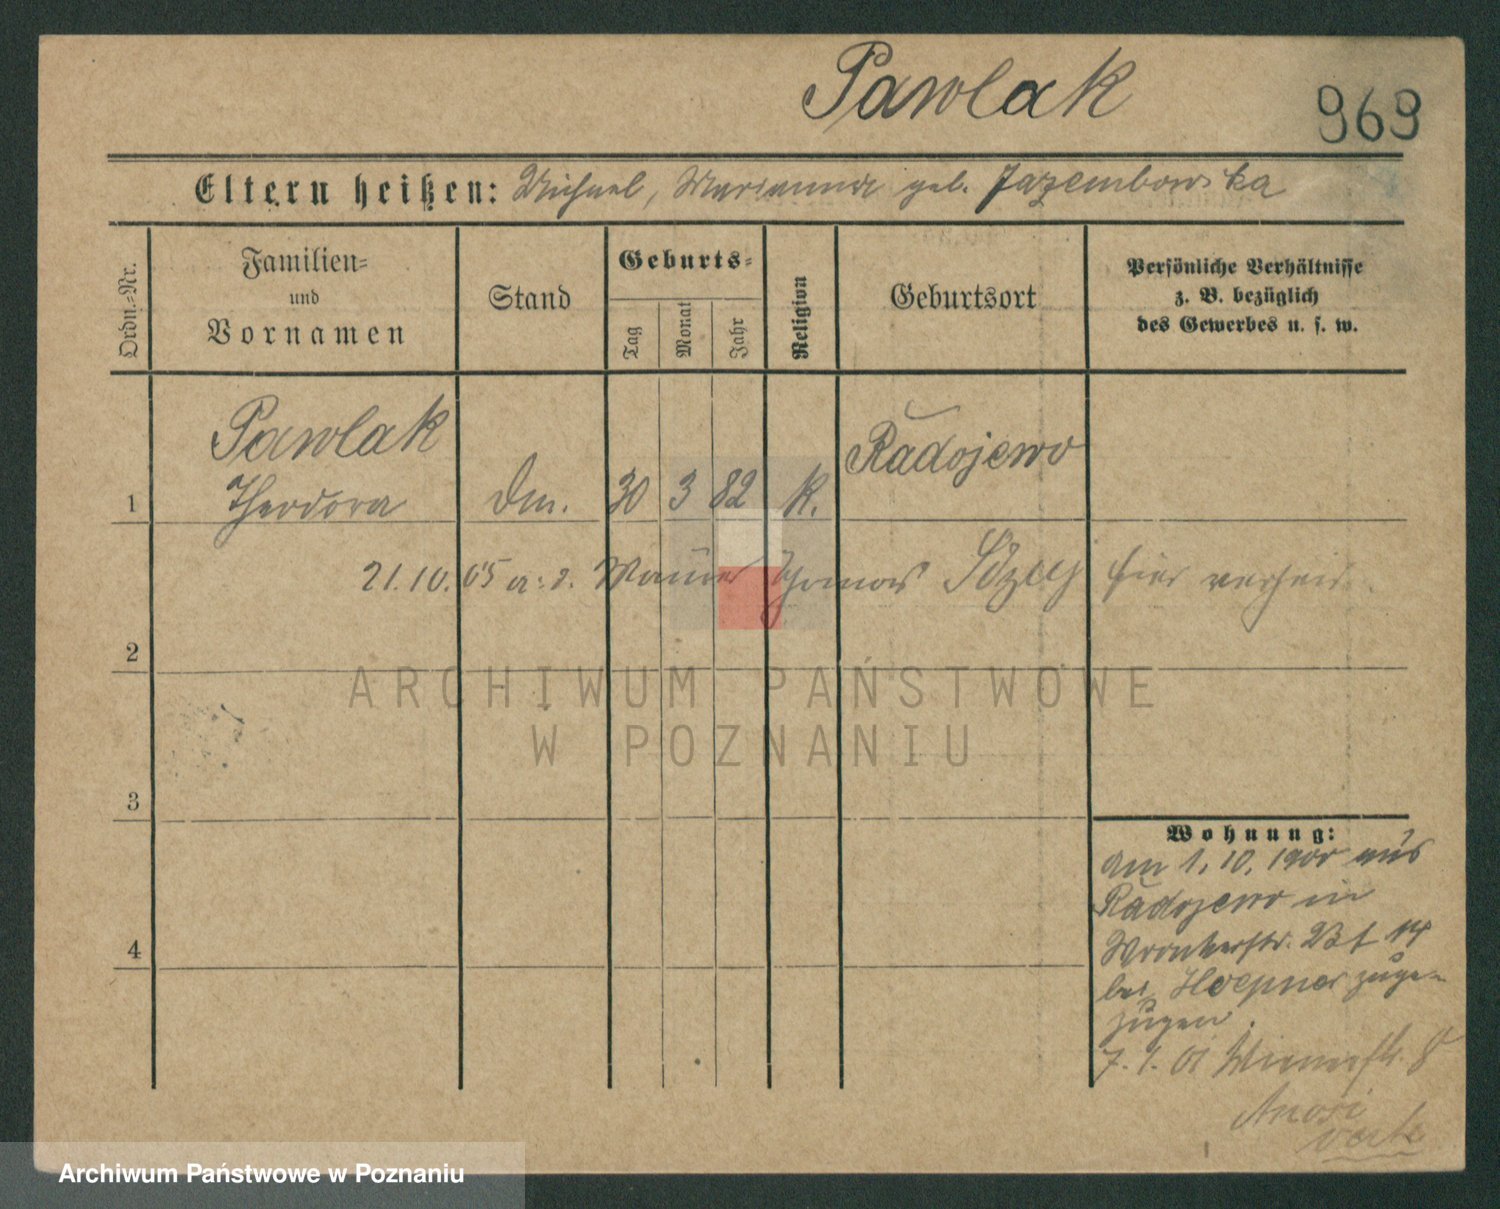 Pawlak
969
Eltern heißen: Michael, Marianna geb. Jazembowska
Ordn.-Nr.
Familien-
und
Vornamen
Stand
Geburts-
Tag
Monat
Jahr
Religion
Geburtsort
Persönliche Verhältnisse
z. B. bezüglich
des Gewerbes u. s. w.
Pawlak
1 Theodora Dm. 30 3 82 K. Radojewo
21.10.05 a. d. Maurer Thomas hier verheir.
2
ARCHIWUM PAŃSTWOWE
W POZNANIU
3
Wohnung:
am 1. 10. 1900 aus
Radojewo in
Wronkerstr. 14
bei Hoepner zuge-
zogen.
7. 1. 01 Wienerstr. 8
4
verte
Archiwum Państwowe w Poznaniu